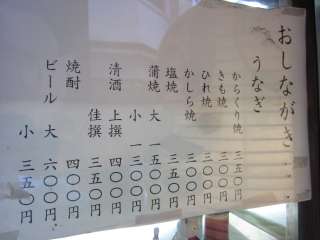 おしながき
うなぎ
からくり焼 三五〇円
きも焼 三〇〇円
ひれ焼 三〇〇円
かしら焼 三〇〇円
塩焼 三五〇円
蒲焼 大 一五〇〇円
小 一三〇〇円
清酒 上撰 四〇〇円
佳撰 三五〇円
焼酎 四〇〇円
ビール 大 六〇〇円
小 三五〇円